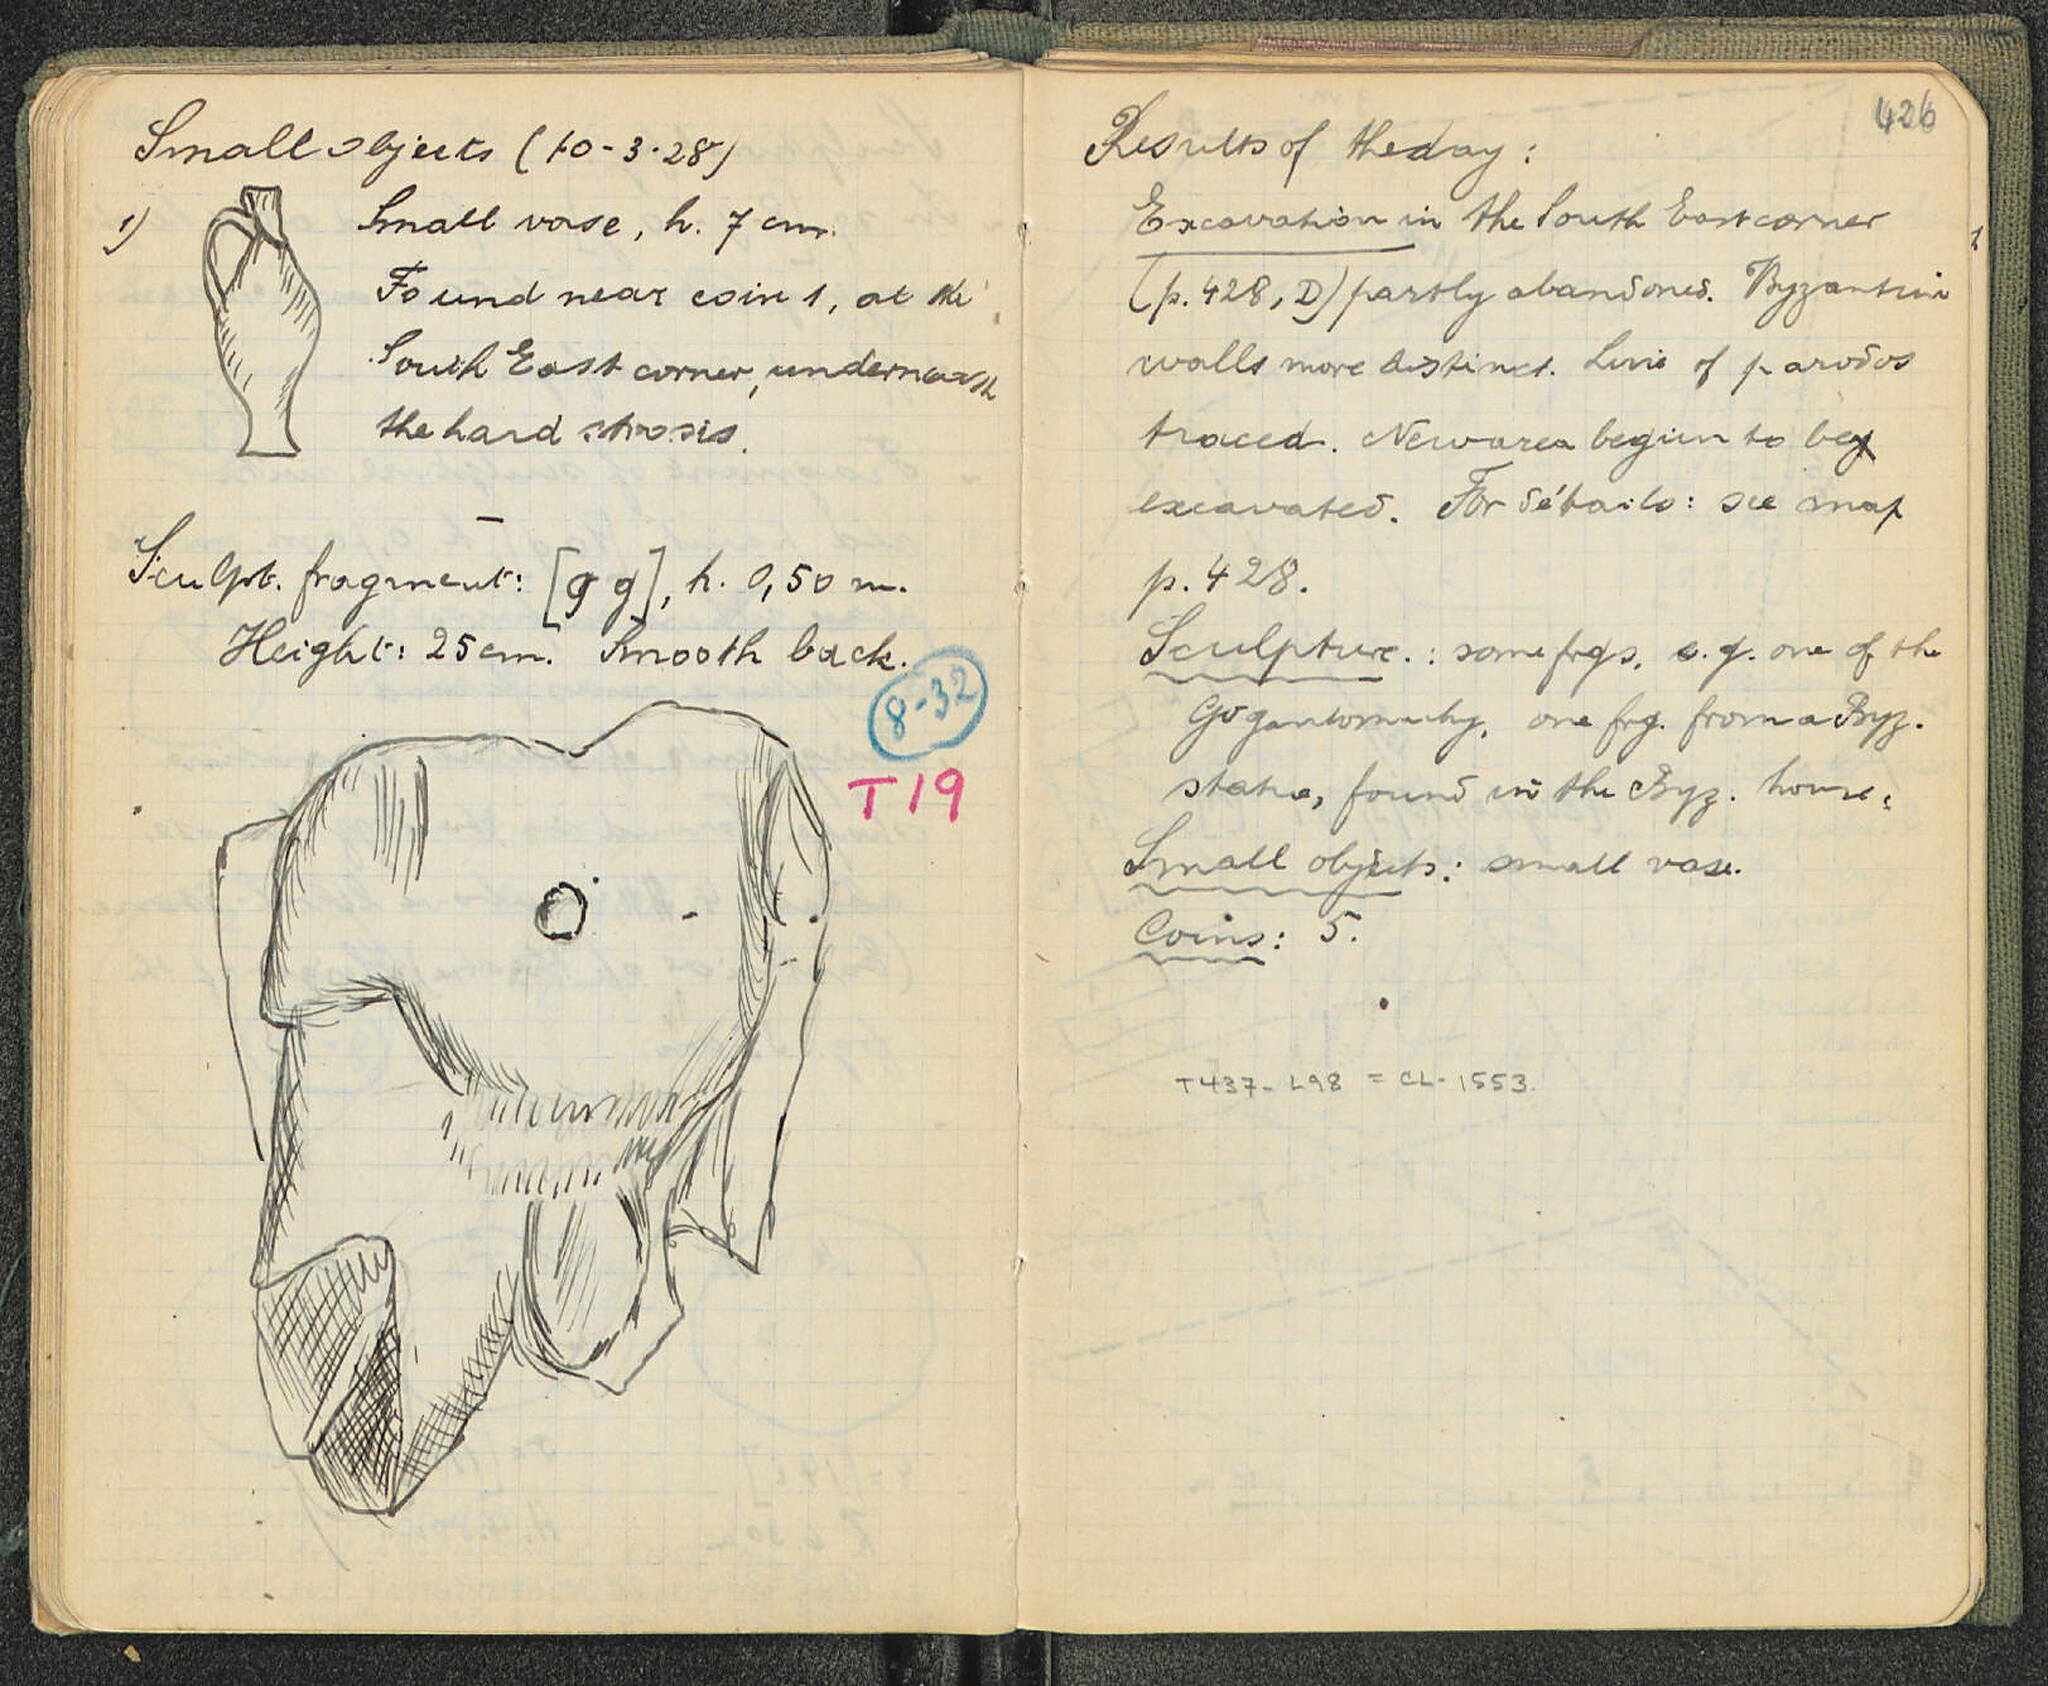 Small objects (10-3-28)
1)
Small vase, h. 7 cm.
Found near coin 1, at the
South East corner, underneath
the hard strosis.
Sculpt. fragment: [g g], h. 0,50 m.
Height: 25 cm. Smooth back.
8-32
T 19
426
Results of the day:
Excavation in the South East corner
(p. 428, D) partly abandoned. Byzantin
walls more distinct. Line of parodos
traced. New area begun to be
excavated. For détails: see map
p. 428.
Sculpture.: some frgs, e.g. one of the
Gigantomachy, one frg. from a Byz.
statue, found in the Byz. house.
Small objects: small vase.
Coins: 5.
T437- L98 = CL- 1553.